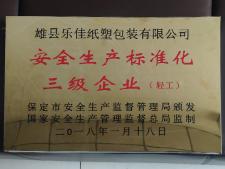 雄县乐佳纸塑包装有限公司
安全生产标准化
三级企业（轻工）
保定市安全生产监督管理局颁发
国家安全生产监督管理总局监制
二〇一八年一月十八日